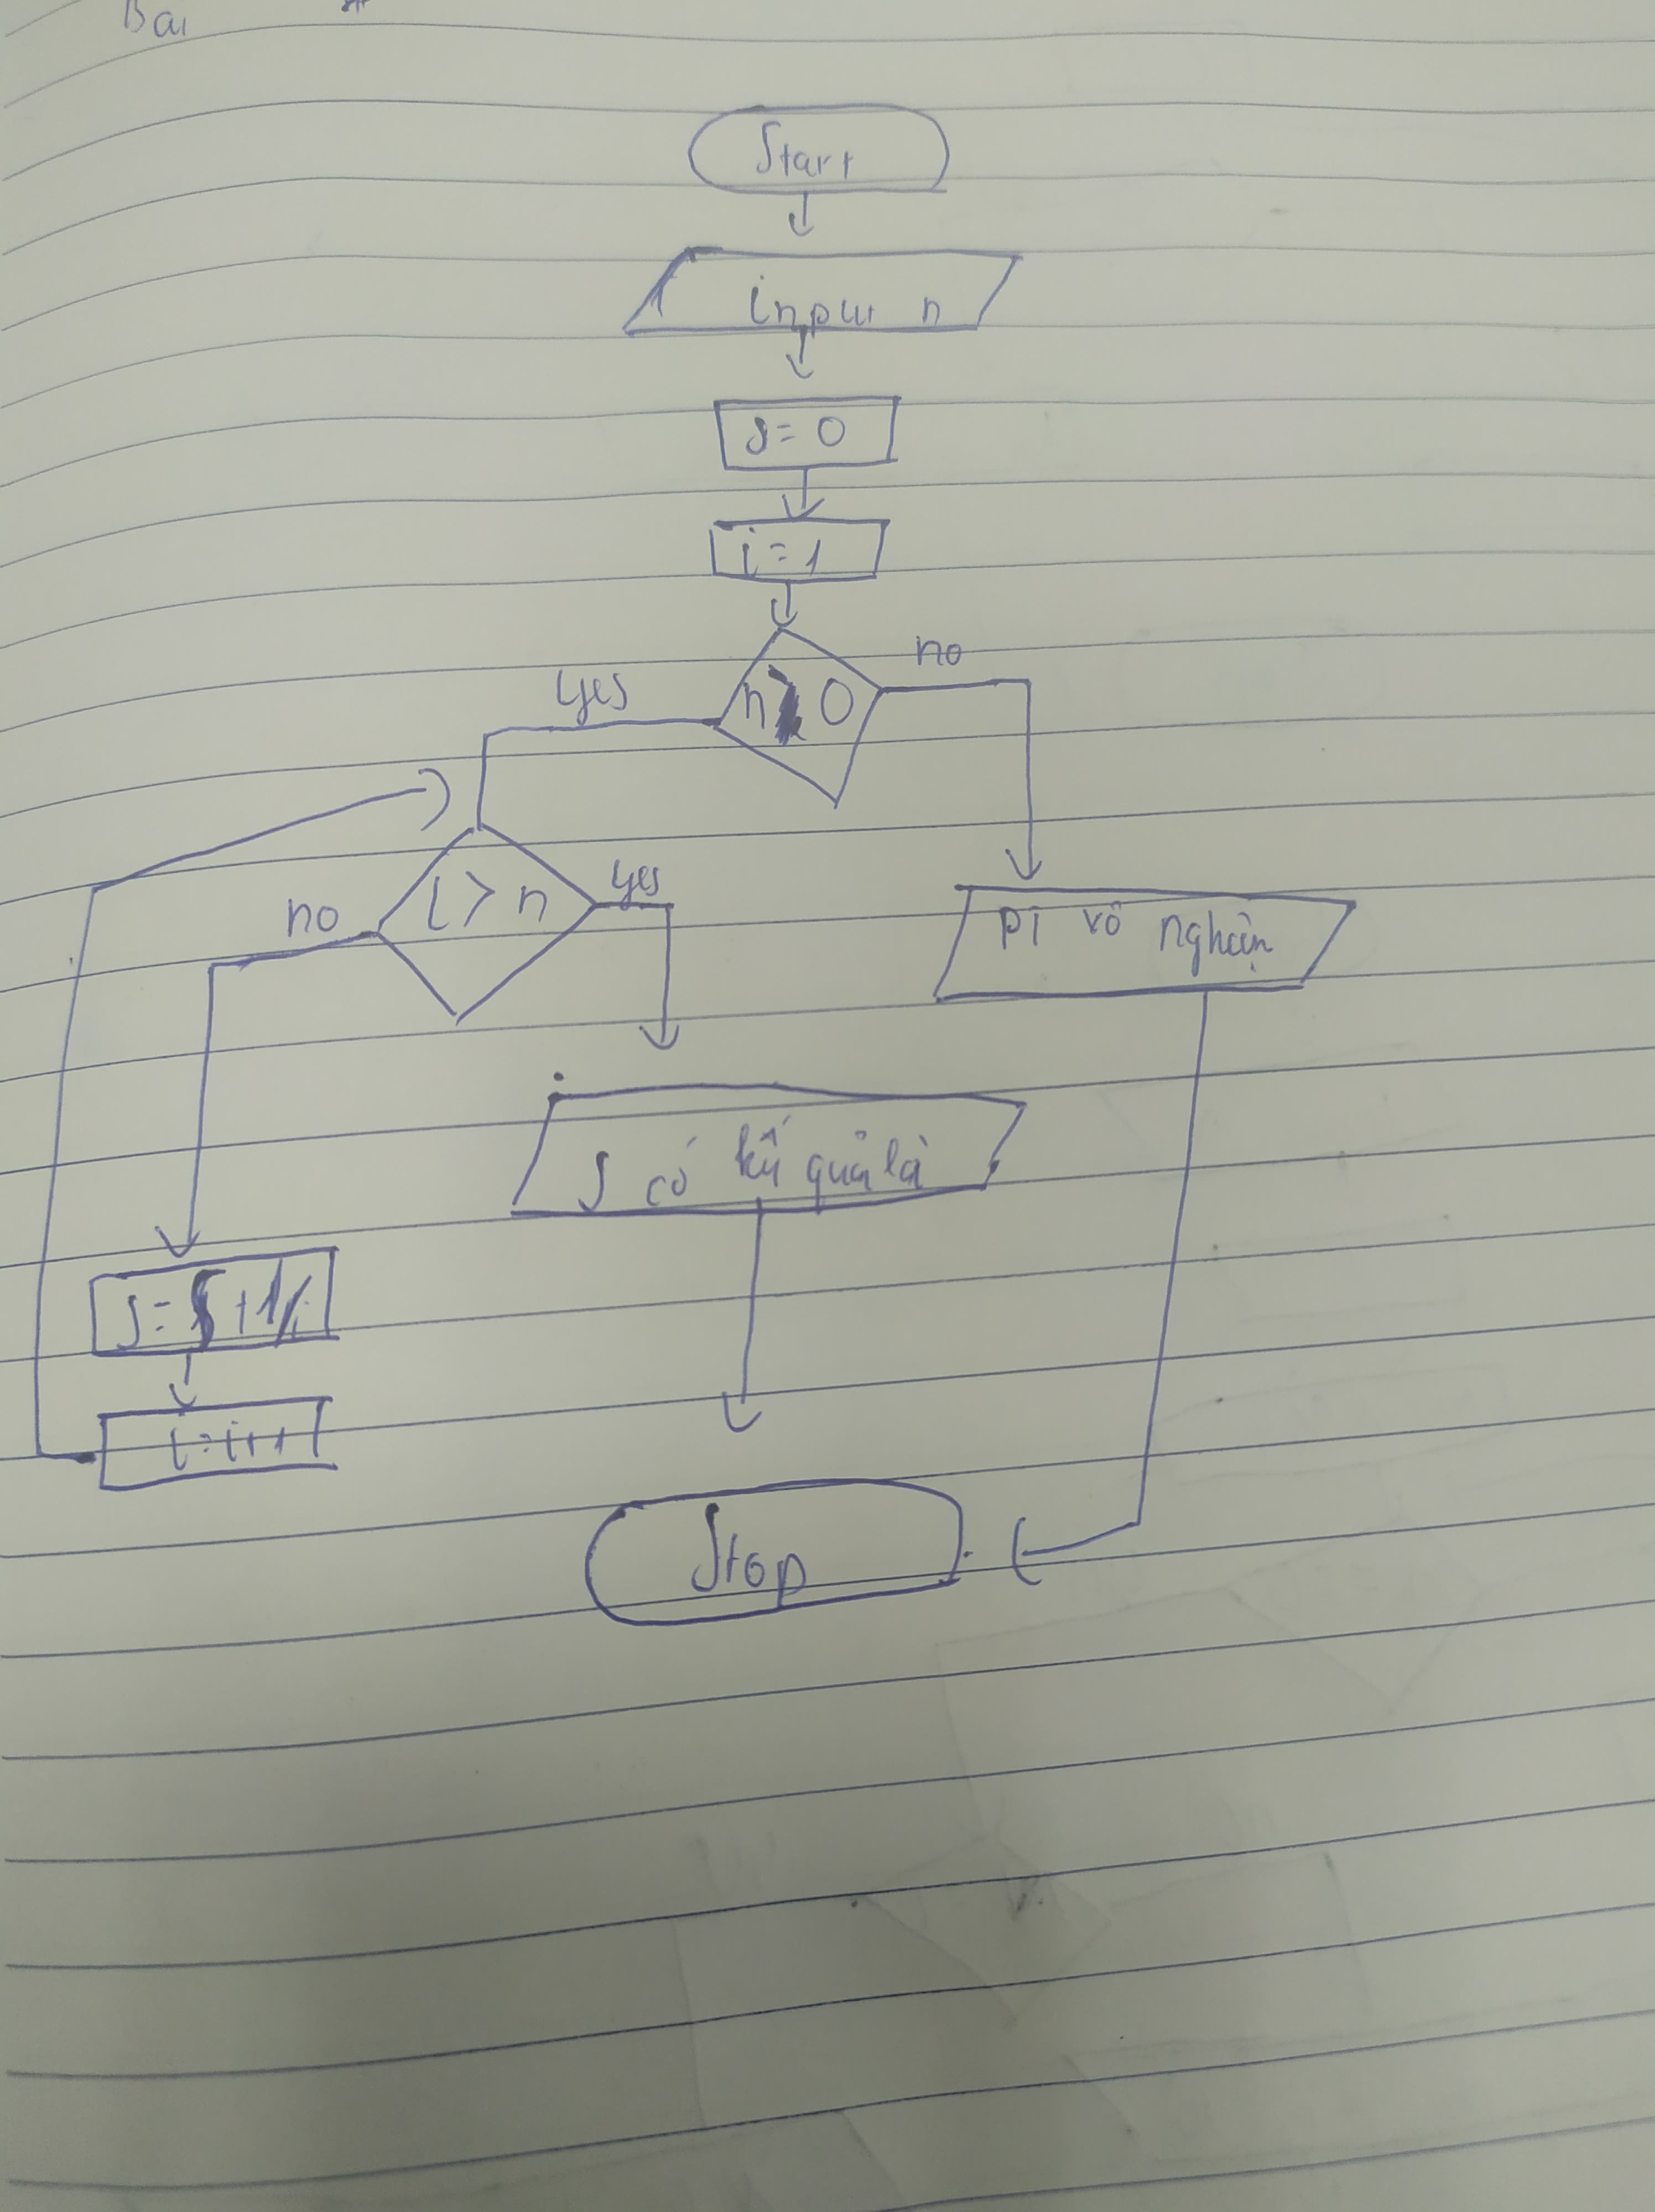 Bài
Start
input n
S = 0
i = 1
n > 0
yes
no
i > n
yes
no
PT vô nghiệm
S có kq quả là
S = S + 1/i
i = i++
Stop